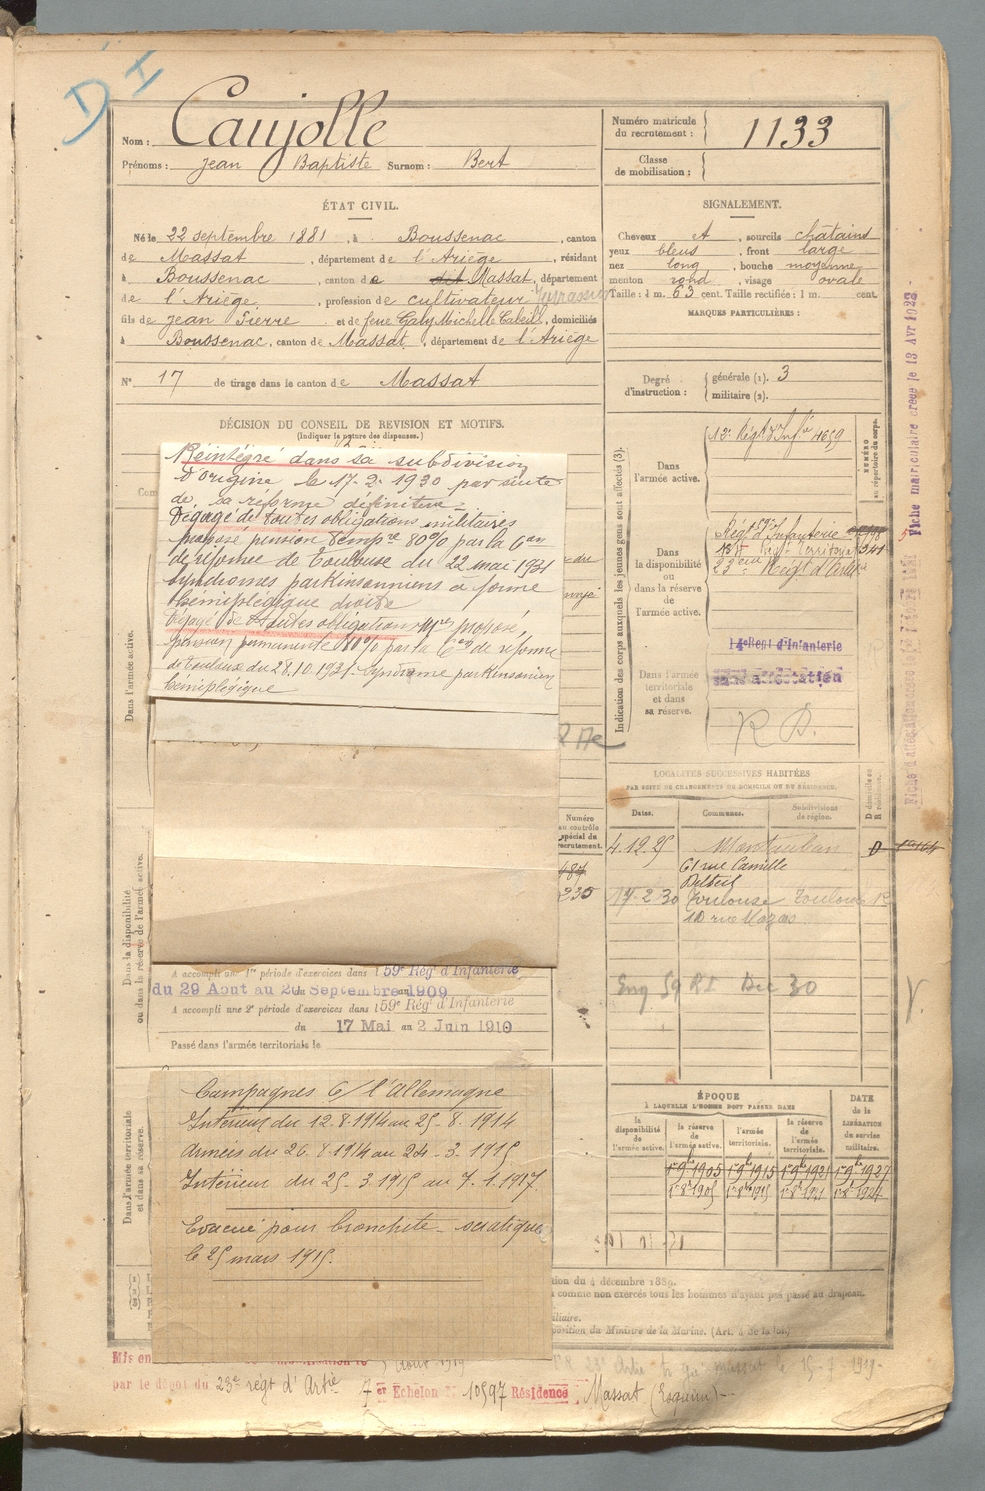 D I
Nom : Caujolle
Prénoms : Jean Baptiste Surnom : Bert
Numéro matricule du recrutement : 1133
Classe de mobilisation :
ÉTAT CIVIL.
Né le 22 septembre 1881, à Boussenac, canton
de Massat, département de l'Ariège, résidant
à Boussenac, canton de dit Massat, département
de l'Ariège, profession de cultivateur
fils de Jean Pierre et de feue Galy Michelle, domiciliés
à Boussenac, canton de Massat, département de l'Ariège
N° 17 de tirage dans le canton de Massat
SIGNALEMENT.
Cheveux et, sourcils chatains
yeux bleus, front large
nez long, bouche moyenne
menton rond, visage ovale
Taille : 1 m. 63 cent. Taille rectifiée : 1 m. cent.
MARQUES PARTICULIÈRES :
Degré d'instruction : générale (1). 3
militaire (2).
DÉCISION DU CONSEIL DE REVISION ET MOTIFS.
(Indiquer la nature des dispenses.)
Réintégré dans sa subdivision
d'origine le 17-2-1930 par suite
de sa réforme définitive
Dégagé de toutes obligations militaires
proposé pension temp^re 80% par la C^on
de réforme de Toulouse du 22 mai 1931
syndromes parkinsonniens à forme
hémiplégique droite
Dégagé de toutes obligations M^res proposé,
pension permanente 80% par la C^on de réforme
de Toulouse du 28.10.1931. Syndrome parkinsonien
hémiplégique
Indication des corps auxquels les jeunes gens sont affectés (3).
NUMÉRO au répertoire du corps.
Dans l'armée active.
12e Régt d'Inf^ie 4659
Dans la disponibilité ou dans la réserve de l'armée active.
Régt 59e d'Infanterie
Régt Territorial 341
23eme Régt d'Artie
Dans l'armée territoriale et dans sa réserve.
14e Regt d'Infanterie
sans affectation
R D.
Fiche matriculaire créée le 13 Avr 1922
LOCALITÉS SUCCESSIVES HABITÉES
PAR SUITE DE CHANGEMENTS DE DOMICILE OU DE RÉSIDENCE.
Dates. Communes. Subdivisions de région. D domicile ou R résidence.
4.12.25 Montauban D
61 rue Camille
Delteil
17-2-30 Toulouse Toulouse R
10 rue Magas
Eng 59 RI Dec 30
Dans l'armée active.
Dans la disponibilité ou dans la réserve de l'armée active.
Numéro au contrôle spécial du recrutement.
487
235
A accompli une 1re période d'exercices dans l 59e Rég^t d'Infanterie
du 29 Aout au 20 Septembre 1909
A accompli une 2e période d'exercices dans l 59e Rég^t d'Infanterie
du 17 Mai au 2 Juin 1910
Passé dans l'armée territoriale le
Dans l'armée territoriale et dans sa réserve.
Campagnes C/ l'Allemagne
Intérieur du 12.8.1914 au 25-8-1914
Armées du 26.8.1914 au 24-3-1915
Intérieur du 25.3.1915 au 7.1.1917
Evacué pour bronchite - sciatique
le 25 mars 1915.
ÉPOQUE
À LAQUELLE L'HOMME DOIT PASSER DANS
DATE de la LIBÉRATION du service militaire.
la disponibilité de l'armée active. la réserve de l'armée active. l'armée territoriale. la réserve de l'armée territoriale.
1er 9b 1905 1er 9b 1915 1er 9b 1921 1er 9b 1927
tion du 4 décembre 1889.
comme non exercés tous les hommes n'ayant pas passé au drapeau.
position du Ministre de la Marine. (Art. 4 de la loi.)
Mis en
août 1919
par le dépôt du 23e régt d'Artie 7 et Echelon N° 10597 Résidence Massat (Esquiru)